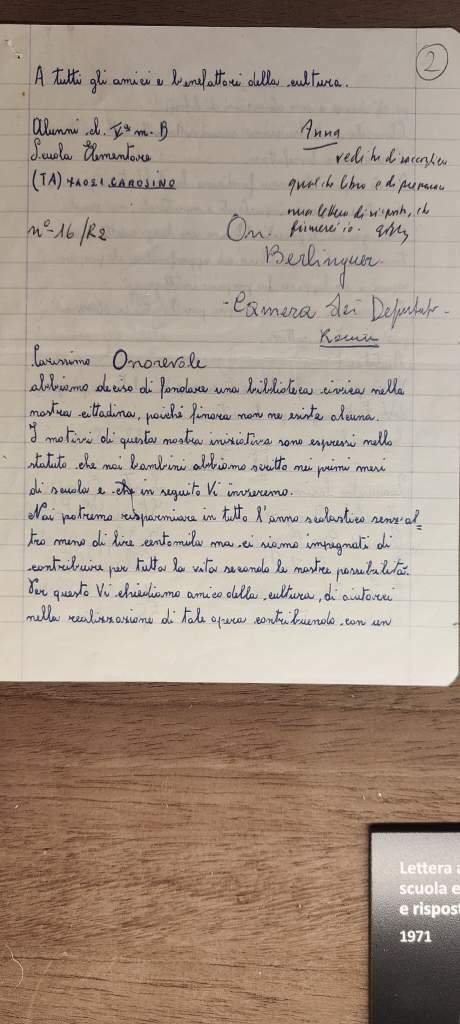 2
A tutti gli amici e benefattori della cultura.
Alunni cl. Vª m. B
Scuola Elementare
(TA) 74021 CAROSINO
nº-16/R2
Anna
vedi tu di raccogliere
qualche libro e di preparare
una lettera di risposta, che
firmerei io.
On.
Berlinguer
-Camera dei Deputati-
Roma
Carissimo Onorevole
abbiamo deciso di fondare una biblioteca civica nella
nostra cittadina, poiché finora non ne esiste alcuna.
I motivi di questa nostra iniziativa sono espressi nello
statuto che noi bambini abbiamo scritto nei primi mesi
di scuola e che in seguito Vi invieremo.
Noi potremo risparmiare in tutto l'anno scolastico senz'al=
tro meno di lire centomila ma ci siamo impegnati di
contribuire per tutta la vita secondo le nostre possibilità.
Per questo Vi chiediamo amico della cultura, di aiutarci
nella realizzazione di tale opera contribuendo con un
Lettera a
scuola e
e rispost
1971